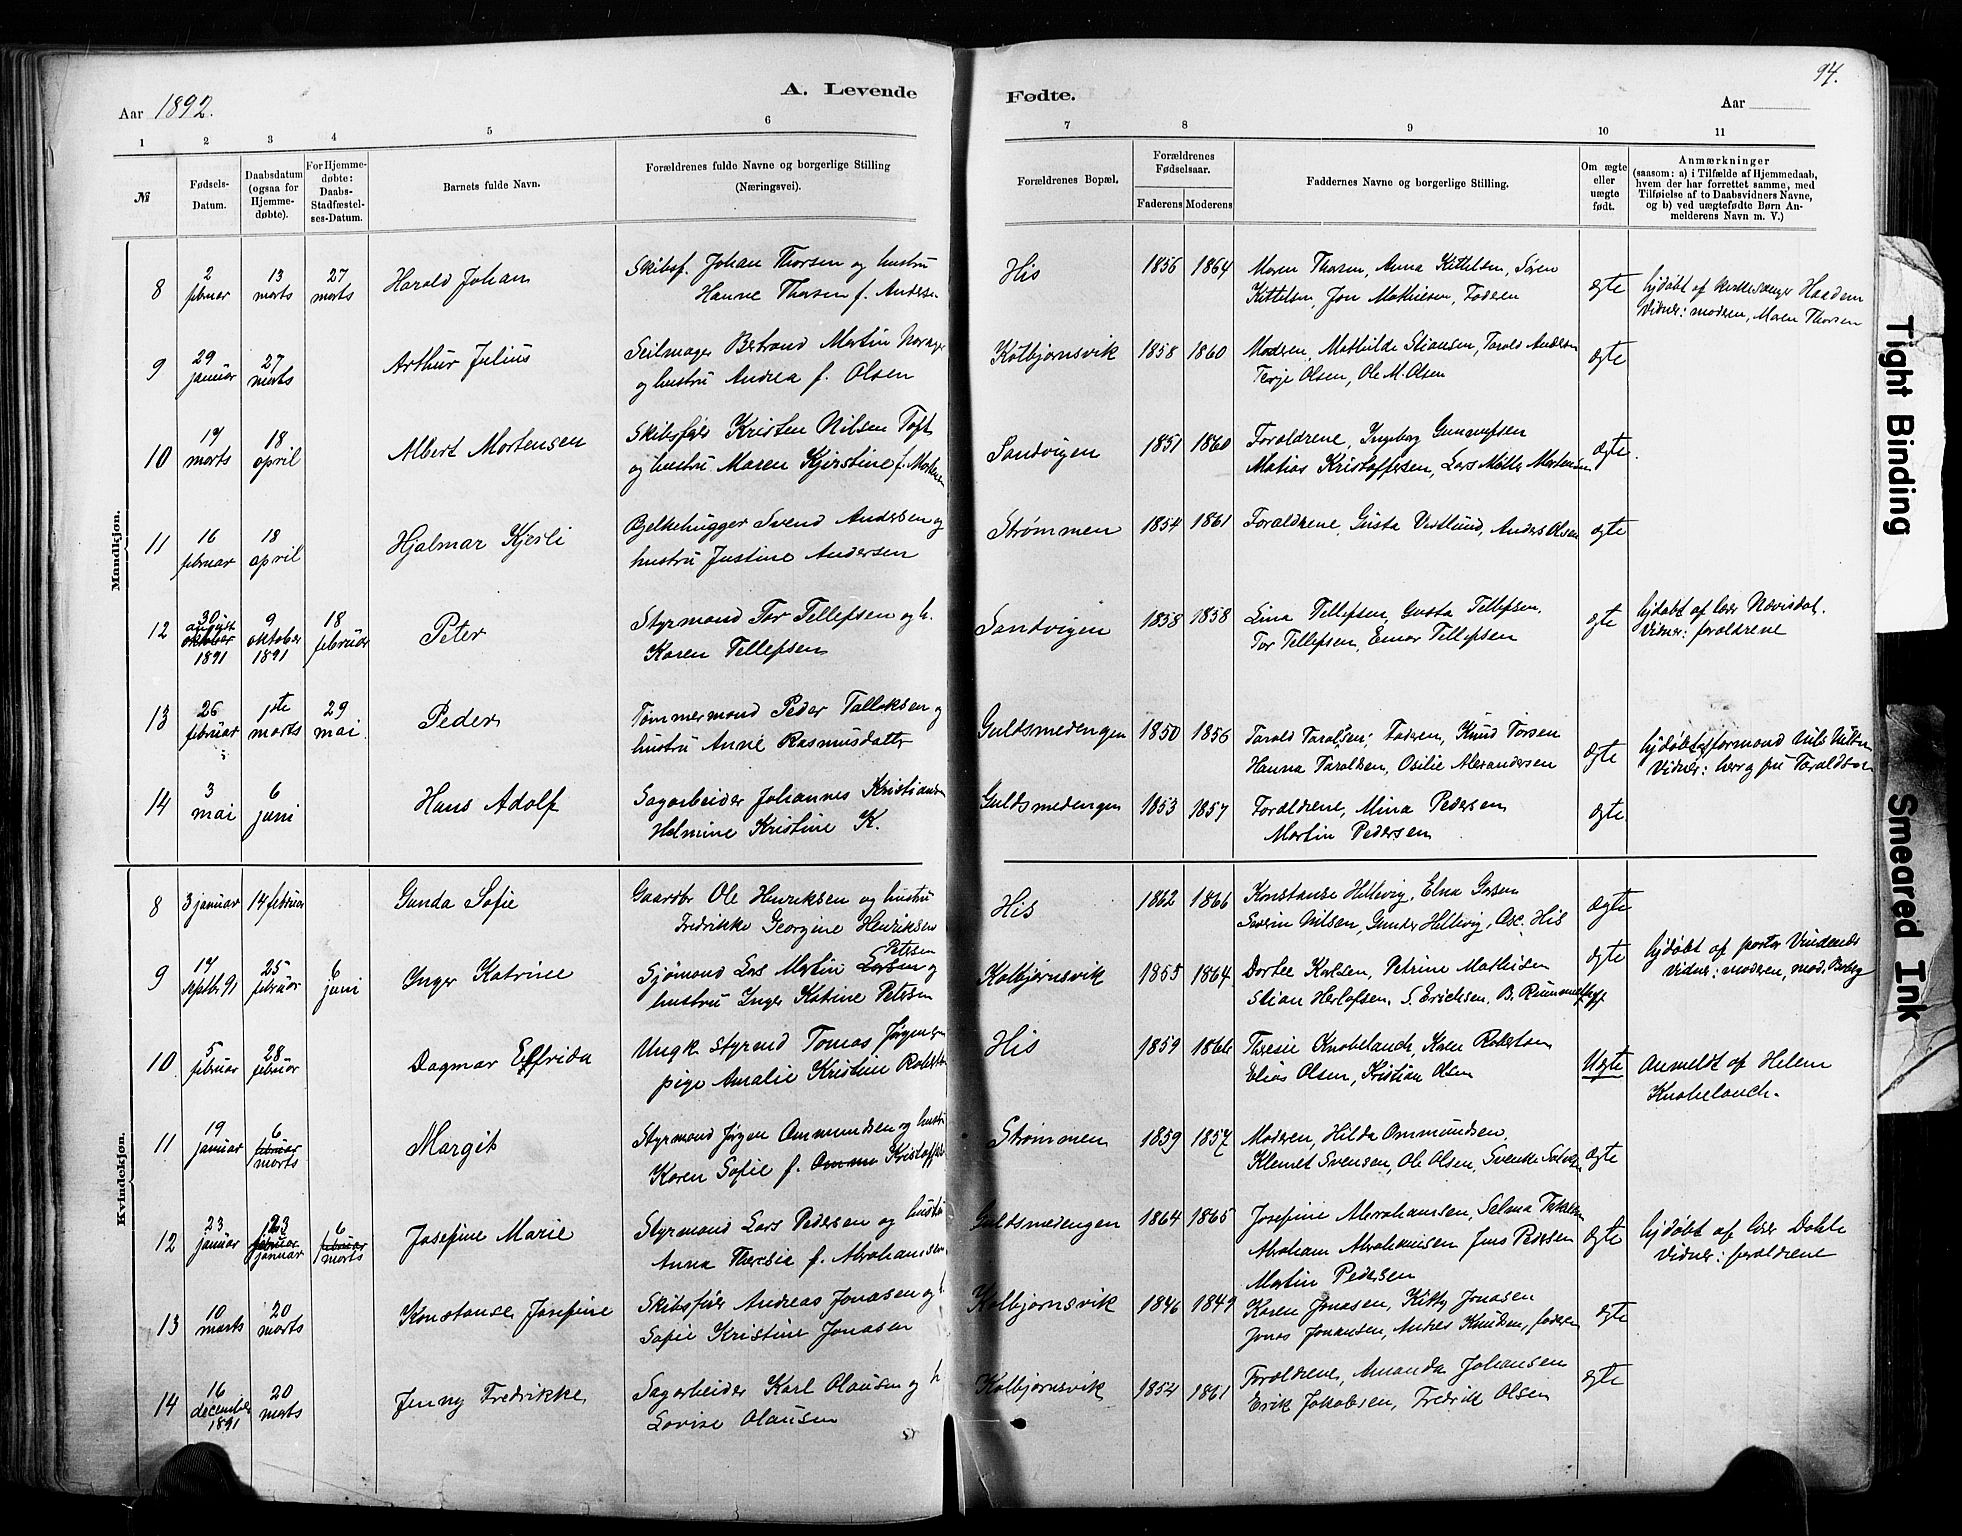 Aar 1892.
A. Levende
Fødte.
Aar
94.
1 2 3 4 5 6 7 8 9 10 11
№
Fødsels-Datum.
Daabsdatum (ogsaa for Hjemme-døbte).
For Hjemme-døbte: Daabs-Stadfæstel-ses-Datum.
Barnets fulde Navn.
Forældrenes fulde Navne og borgerlige Stilling (Næringsvei).
Forældrenes Bopæl.
Forældrenes Fødselsaar.
Faderens Moderens
Faddernes Navne og borgerlige Stilling.
Om ægte eller uægte født.
Anmærkninger
(saasom: a) i Tilfælde af Hjemmedaab, hvem der har forrettet samme, med Tilføielse af to Daabsvidners Navne, og b) ved uægtefødte Børn An-melderens Navn m. V.)
Mandkjøn.
8 2 februar 13 marts 27 marts Harald Johan Skibsf. Johan Thorsen og hustru His 1856 1864 Maren Thorsen, Anna Kittelsen, Søren ægte hjdøbt af kirkesanger Haadem
Hanne Thorsen f. Andersen Kittelsen, Jon Mathiesen, Faderen Vidner: moderen, Maren Thorsen
9 29 januar 27 marts Arthur Julius Seilmager Bertrand Martin Kolbjørnsvik 1858 1860 Moderen, Mathilde Stiansen, Tarald Andersen ægte
og hustru Andrea f. Olsen Terje Olsen, Ole M. Olsen
10 marts 18 april Albert Mortensen Skibsfører Kristen Nilsen Toft Sandvigen 1851 1860 Forældrene, Ingeborg ægte.
og hustru Maren Kjerstine f. Mortensen Matias Kristoffersen, Lars Møller Mortensen
11 16 februar 18 april Hjalmar Bjelkehugger Svend Andersen og Strømmen 1854 1861 Forældrene, Gusta Anders Olsen ægte
hustru Justine Andersen
12 30 august oktober 1891 9 oktober 1891 18 februar Peter Styrmand Tor Tellefsen og h. Sandvigen 1858 1858 Lina Tellefsen, Gusta Tellefsen, ægte hjdøbt af lærer
Karen Tellefsen Tor Tellefsen, Einar Tellefsen Vidner: forældrene
13 26 februar 1ste marts 29 mai Peder Tømmermand Peder Tallaksen og Guldsmedengen 1850 1856 Tarald Taralsen, Faderen, Knud Torsen ægte hjdøbt af formand Nils
hustru Anne Rasmusdatter Hanna Taraldsen, Osilie Alexandersen Vidner: herr og fru Taraldsen
14 3 mai 6 juni Hans Adolf Sagarbeider Johannes Kristiansen Guldsmedengen 1853 1857 Forældrene, Mina Pedersen ægte
Helmine Kristine K. Martin Pedersen
Kvindekjøn.
8 3 januar 14 februar Gunda Sofie Gaardbr Ole Henriksen og hustru His 1862 1866 Konstanse Helllevig, Elna ægte
Fredrikke Georgine Henriksen Severin Nilsen, Gunder Hellevig, Osc. His
9 septb. 91 25 februar 6 juni Inger Katrine Sjømand Lars Martin Larsen Petersen og Kolbjørnsvik 1855 1864 Dortee Karlsen, Petrine Mathisen ægte hjdøbt af pastor
hustru Inger Katrine Petersen Stian Herlofsen, S. Erichsen, B. Vidner: moderen, mad. Borberg
10 5 februar 28 februar Dagmar Elfrida Ungk. styrmd Tomas Jørgensen His 1859 1866 Theresie Knobelauch, Karen Robertsen Uægte Anmeldt af Helene
pige Amalie Kristine Robertsen Elias Olsen, Kristian Olsen Knobelauch.
11 19 januar 6 februar marts Margit Styrmand Jørgen Ommundsen og hustru Strømmen 1859 1857 Moderen, Hilda Ommundsen, ægte
Karen Sofie f. Kristoffersen Klemet Svensen, Ole Olsen,
12 23 januar 23 februar januar 6 februar marts Josefine Marie Styrmand Lars Pedersen og hustru Guldsmedengen 1864 1865 Josefine Abrahamsen, Selma ægte hjdøbt af lærer Dahle
Anna Theresia f. Abrahamsen Abraham Abrahamsen Jens Pedersen Vidner: forældrene
Martin Pedersen
13 10 marts 20 marts Konstanse Josefine Skibsfører Andreas Jonasen og h Kolbjørnsvik 1846 1849 Karen Jonasen, Kitty Jonasen ægte
Sofie Kristine Jonasen Jonas Jonassen, Andres Knudsen, faderen
14 16 december 1891 20 marts Jenny Fredrikke Sagarbeider Karl Olausen og h Kolbjørnsvik 1854 1861 Forældrene, Amanda Johansen ægte
Lovise Olausen Erik Jakobsen, Fredrik Olsen
Tight Binding
Smeared Ink